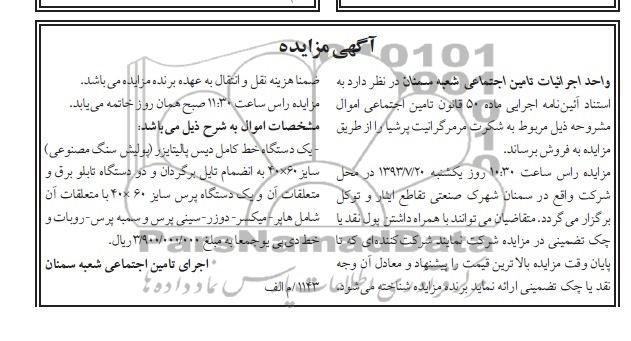 آگهی مزایده
واحد اجرائیات تامین اجتماعی شعبه سمنان در نظر دارد به
استناد آئین‌نامه اجرایی ماده ۵۰ قانون تامین اجتماعی اموال
مشروحه ذیل مربوط به شکرت مرمرگرانیت پرشیا را از طریق
مزایده به فروش برساند.
مزایده راس ساعت ۱۰:۳۰ روز یکشنبه ۱۳۹۳/۷/۲۰ در محل
شرکت واقع در سمنان شهرک صنعتی تقاطع ایثار و توکل
برگزار می‌گردد. متقاضیان می‌توانند با همراه داشتن پول نقد یا
چک تضمینی در مزایده شرکت نمایند. شرکت‌کننده‌ای که تا
پایان وقت مزایده بالاترین قیمت را پیشنهاد و معادل آن وجه
نقد یا چک تضمینی ارائه نماید برنده مزایده شناخته می‌شود.
ضمنا هزینه نقل و انتقال به عهده برنده مزایده می‌باشد.
مزایده راس ساعت ۱۱:۳۰ صبح همان روز خاتمه می‌یابد.
مشخصات اموال به شرح ذیل می‌باشد:
-یک دستگاه خط کامل دیس پالیتایزر (پولیش سنگ مصنوعی)
سایز ۶۰×۴۰ به انضمام تایل برگردان و دو دستگاه تابلو برق و
متعلقات آن و یک دستگاه پرس سایز ۶۰ ×۴۰ با متعلقات آن
شامل هاپر-میکسر-دوزر-سینی پرس و سمبه پرس-روبات و
خط دی‌بی یو جمعا به مبلغ ۳/۹۰۰/۰۰۰/۰۰۰ ریال.
اجرای تامین اجتماعی شعبه سمنان
۱۱۴۳/م الف
ParsNamadData